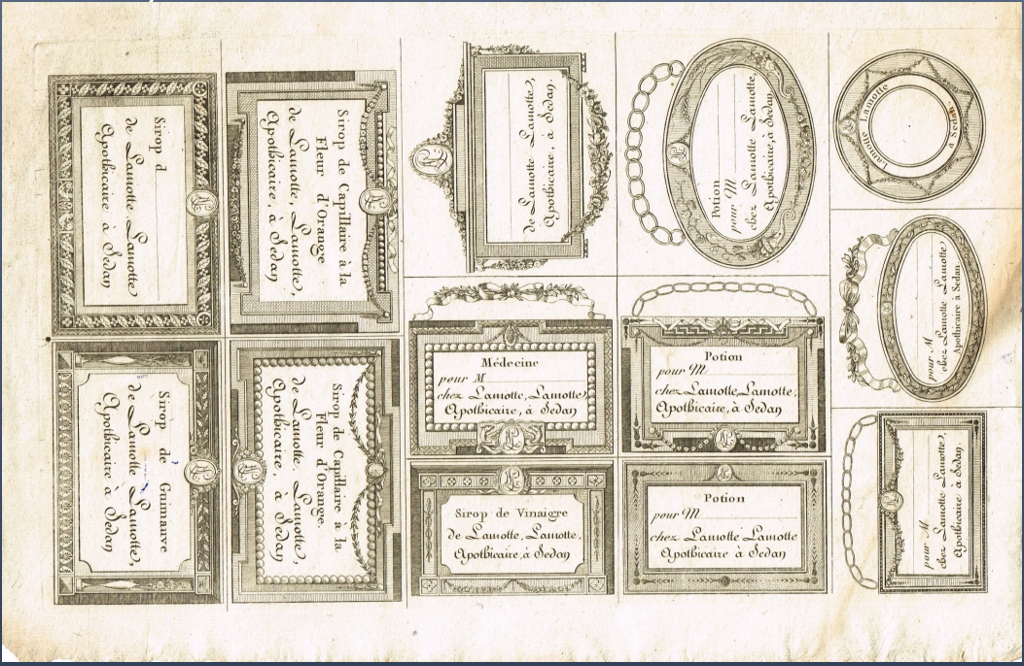 Sirop d
de Lamotte Lamotte
Apothicaire à Sedan
Sirop de Capillaire à la
Fleur d'Orange
de Lamotte, Lamotte,
Apothicaire, à Sedan
de Lamotte Lamotte,
Apothicaire, à Sedan.
Potion
pour M
chez Lamotte Lamotte,
Apothicaire, à Sedan
Lamotte Lamotte
à Sedan.
pour M
chez Lamotte Lamotte
Apothicaire à Sedan
Sirop de Guimauve
de Lamotte Lamotte,
Apothicaire, à Sedan
Sirop de Capillaire à la
Fleur d'Orange.
de Lamotte, Lamotte,
Apothicaire, à Sedan
Médecine
pour M
chez Lamotte, Lamotte,
Apothicaire, à Sedan
Potion
pour M
chez Lamotte, Lamotte,
Apothicaire, à Sedan
pour M
chez Lamotte Lamotte,
Apothicaire, à Sedan
Sirop de Vinaigre
de Lamotte, Lamotte,
Apothicaire, à Sedan
Potion
pour M
chez Lamotte Lamotte
Apothicaire à Sedan